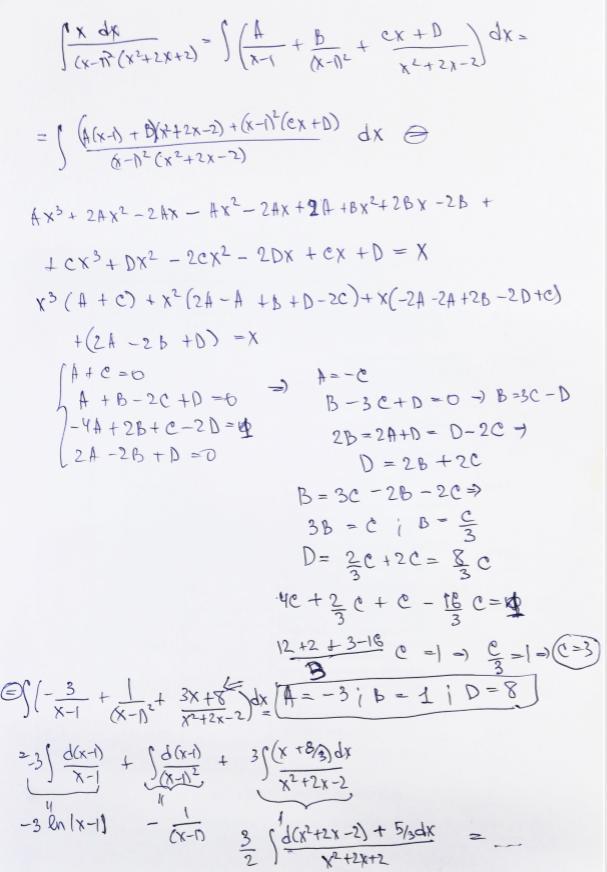 ∫ x dx / (x-1)² (x²+2x+2) = ∫ ( A / x-1 + B / (x-1)² + cx + D / x²+2x-2 ) dx =
= ∫ (A(x-1) + B)(x²+2x-2) + (x-1)²(cx+D) / (x-1)² (x²+2x-2) dx ⊖
Ax³ + 2Ax² - 2Ax - Ax² - 2Ax + 2A + Bx² + 2Bx - 2B +
+ cx³ + Dx² - 2cx² - 2Dx + cx + D = x
x³(A + c) + x²(2A - A + B + D - 2c) + x(-2A - 2A + 2B - 2D + c)
+ (2A - 2B + D) = x
{ A + c = 0 ⇒ A = -c
A + B - 2c + D = 0 B - 3c + D = 0 → B = 3c - D
-4A + 2B + c - 2D = 1 2B = 2A + D = D - 2c →
2A - 2B + D = 0 D = 2B + 2c
B = 3c - 2B - 2c ⇒
3B = c ; B = c/3
D = 2/3 c + 2c = 8/3 c
4c + 2/3 c + c - 16/3 c = 1
12 + 2 + 3 - 16 / 3 c = 1 → c/3 = 1 → c = 3
⊜ ∫ ( - 3 / x-1 + 1 / (x-1)² + 3x+8 / x²+2x-2 ) dx = A = -3 ; B = 1 ; D = 8
= -3 ∫ d(x-1) / x-1 + ∫ d(x-1) / (x-1)² + 3 ∫ (x + 8/3) dx / x²+2x-2
-3 ln|x-1| - 1 / (x-1) 3/2 ∫ d(x²+2x-2) + 5/3 dx / x²+2x+2 = ...